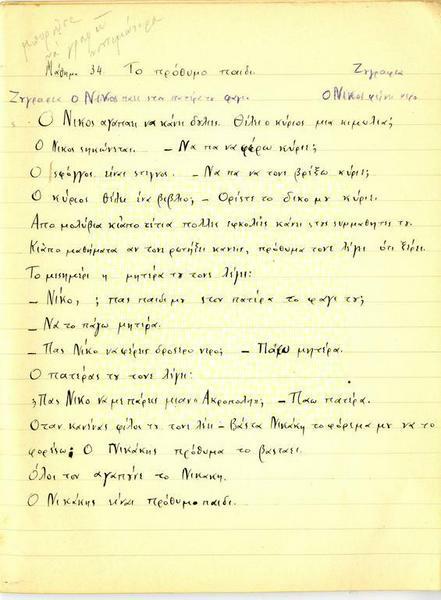 μπορείτε
να γίνει
Μάθημ. 34. Το πρόθυμο παιδί
Ζωγραφια
Ζωγραφια Ο Νίκος παει στο πατέρα το φαγι.
Ο Νίκος φέρνει νερο
Ο Νίκος αγαπαει να κάνη δυλιες. Θέλει ο κύριος μια κιμωλια;
Ο Νίκος σηκώνεται. – Να πα να φέρω κύριε;
Ο σφόγγος είναι στεγνος. – Να πα να τονε βρέξω κύριε;
Ο κύριος θέλει ένα βιβλιο; – Ορίστε το δικο μυ κύριε.
Απο μολύβια κι απο τέτια πολλες εφκολίες κάνει στυς συμμαθητες τυ.
Κι απο μαθήματα αν τον ρωτήξει κανεις, πρόθυμα τονε λέγει ότι ξέρει.
Το μεσημέρι η μητέρα τυ τονε λέγει:
– Νίκο, ; πας παιδι μυ στον πατέρα το φαγι τυ;
– Να το πάγω μητέρα.
– Πας Νίκο να φέρης δροσερο νερο; – Πάγω μητέρα.
Ο πατέρας τυ τονε λέγει:
; Πας Νίκο να με πάρεις μιαν Ακροπολη; – Παω πατέρα.
Οταν κανένας φίλος τυ τονε λέει – Βάστα Νικάκη το φόρεμα μυ να το
φορέσω; Ο Νικάκης πρόθυμα το βασταει.
Όλοι τον αγαπύνε το Νικακη.
Ο Νικάκης είναι πρόθυμο παιδι.